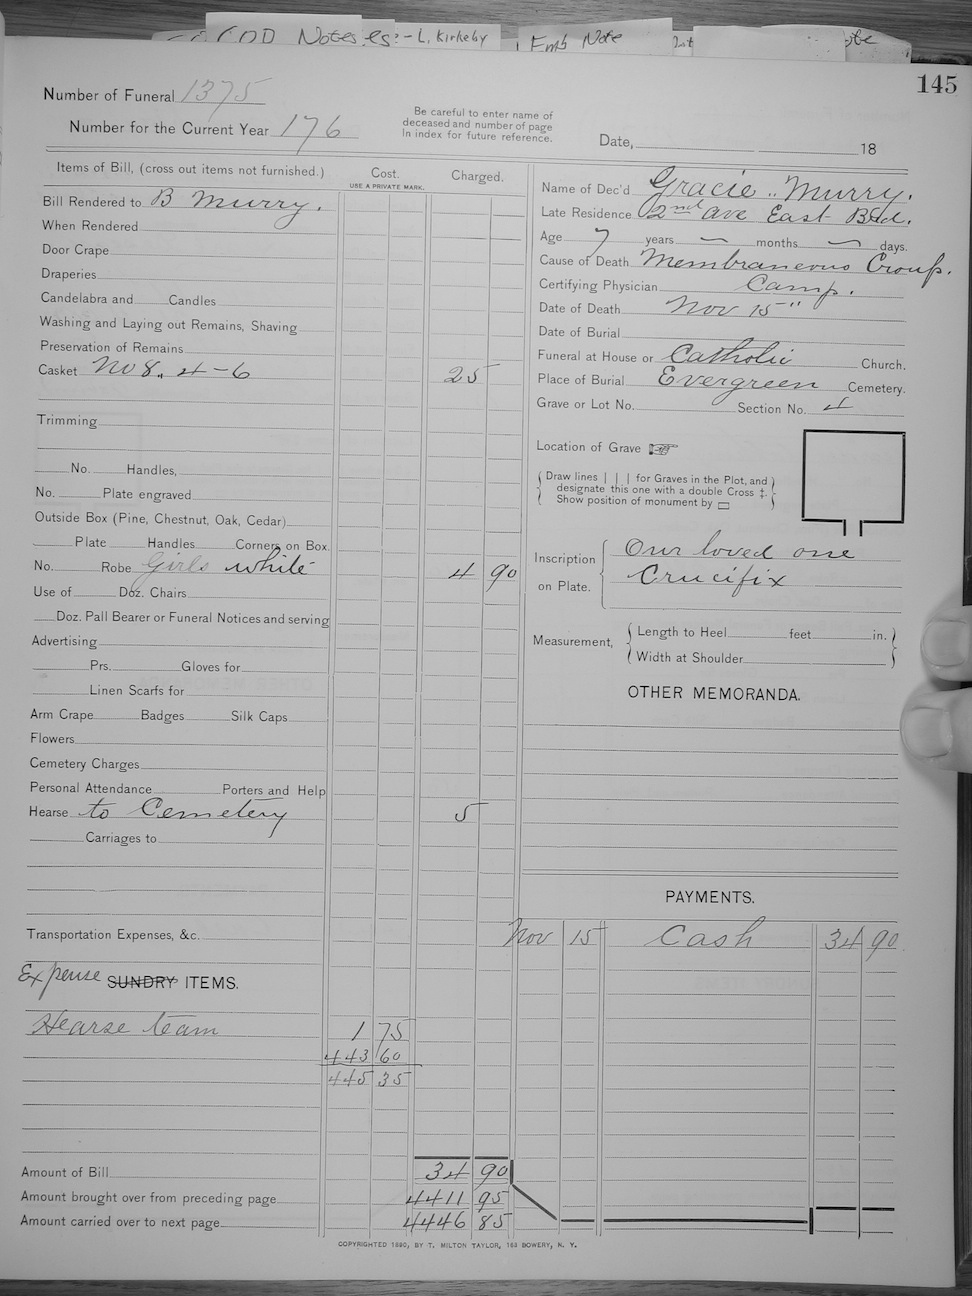 COD Notes es:- L. Kirkeby
Emb Note
145
Number of Funeral 1375
Number for the Current Year 176
Be careful to enter name of
deceased and number of page
in index for future reference.
Date, 18
Items of Bill, (cross out items not furnished.)
Cost.
USE A PRIVATE MARK.
Charged.
Bill Rendered to B Murry.
When Rendered
Door Crape
Draperies
Candelabra and Candles
Washing and Laying out Remains, Shaving
Preservation of Remains
Casket No 8,, 4-6 25
Trimming
No. Handles,
No. Plate engraved
Outside Box (Pine, Chestnut, Oak, Cedar)
Plate Handles Corners on Box.
No. Robe Girls white 4 90
Use of Doz. Chairs
Doz. Pall Bearer or Funeral Notices and serving
Advertising
Prs. Gloves for
Linen Scarfs for
Arm Crape Badges Silk Caps
Flowers
Cemetery Charges
Personal Attendance Porters and Help
Hearse to Cemetery 5
Carriages to
Transportation Expenses, &c.
Expense SUNDRY ITEMS.
Hearse team 1 75
443 60
445 35
Amount of Bill 34 90
Amount brought over from preceding page 4411 95
Amount carried over to next page 4446 85
Name of Dec'd Gracie .. Murry.
Late Residence 2nd ave East End.
Age 7 years — months — days.
Cause of Death Membraneous Croup.
Certifying Physician Camp.
Date of Death Nov 15"
Date of Burial
Funeral at House or Catholic Church.
Place of Burial Evergreen Cemetery.
Grave or Lot No. Section No. 4
Location of Grave
Draw lines | | | for Graves in the Plot, and
designate this one with a double Cross ‡.
Show position of monument by ▭
Inscription on Plate. Our loved one
Crucifix
Measurement, Length to Heel feet in.
Width at Shoulder
OTHER MEMORANDA.
PAYMENTS.
Nov 15 Cash 34 90
COPYRIGHTED 1880, BY T. MILTON TAYLOR, 163 BOWERY, N. Y.